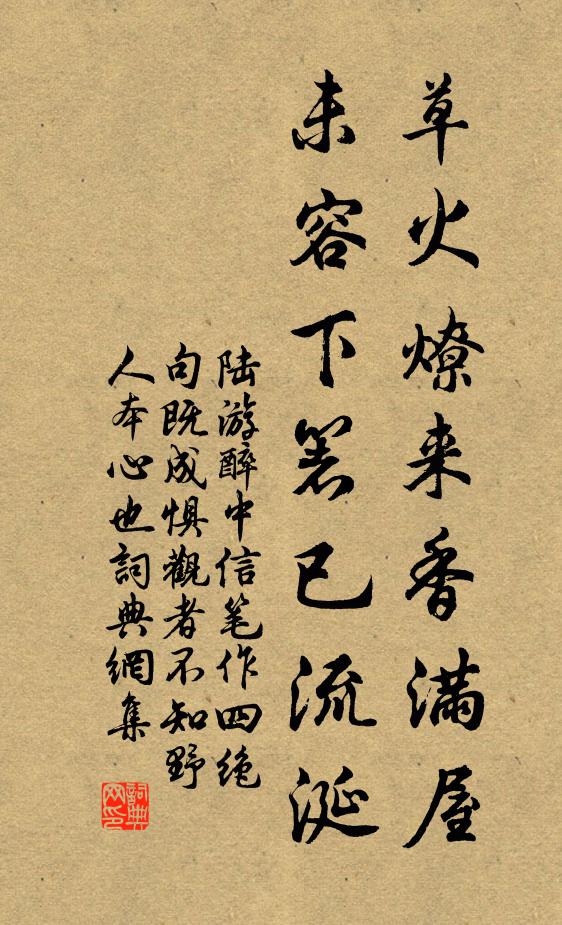 草火燎来香滿屋
未容下箸已流涎
陆游醉中信笔作四绝
句既成惧觀者不知野
人本心也詞典網集
詞典
网印